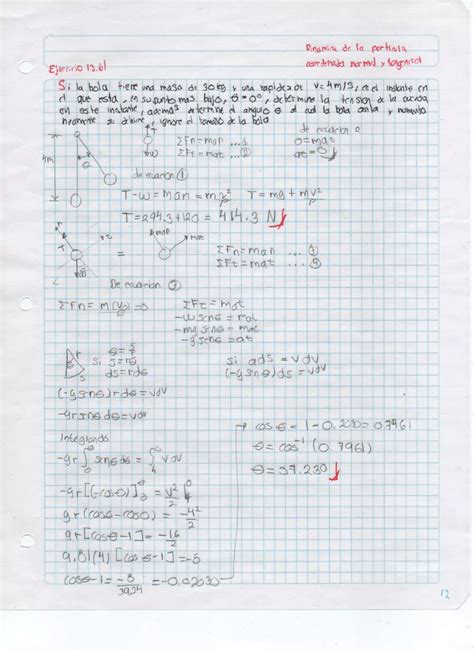 Dinámica de la partícula
coordenadas normal y tangencial
Ejercicio 13.61
Si la bola tiene una masa de 30 kg y una rapidez de v=4m/s, en el instante en
el que está, en su punto más bajo, θ=0°, determine la tensión de la cuerda
en este instante, además determine el angulo θ al cual la bola oscila y momentá
neamente se detiene, ignore el tamaño de la bola
ΣFn=man ... ①
ΣFt=mat ... ②
de ecuacion 2
0=mat
at=0
4m
de ecuacion ①
T-w=man=m v²/ρ   T=mg+mv²/ρ
T=294.3+120=414.3 N
=
man
mat
ΣFn=man ... ③
ΣFt=mat
De ecuacion
ΣFn= =0
ΣFt=mat
-w senθ=mat
-mg senθ=mat
-g senθ=at
θ=s/r
s=rθ
ds=rdθ
si ads=vdv
(-g senθ)ds=vdv
(-g senθ)rdθ=vdv
-gr senθdθ=vdv
Integrando
-gr∫₀^θ senθdθ=∫₄^0 vdv
-gr[-cosθ]₀^θ=v²/2 |₄^0
gr(cosθ-cos0)=-4²/2
gr[cosθ-1]=-16/2
9.81(4)[cosθ-1]=-8
cosθ-1=-8/39.24=-0.02030
cosθ=1-0.2030=0.7961
θ=cos⁻¹(0.7961)
θ=37.230
12